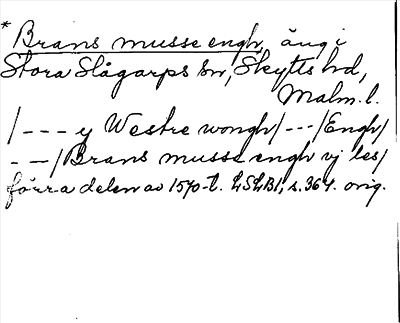 * Brans musse engh, äng i
Stora Slågarps sn, Skytts hd,
Malm. l.
/--- y Westre wongh/---/Engh/
- -/Brans musse engh vj les/
förra delen av 1570-t. LSLB1, s. 364. orig.